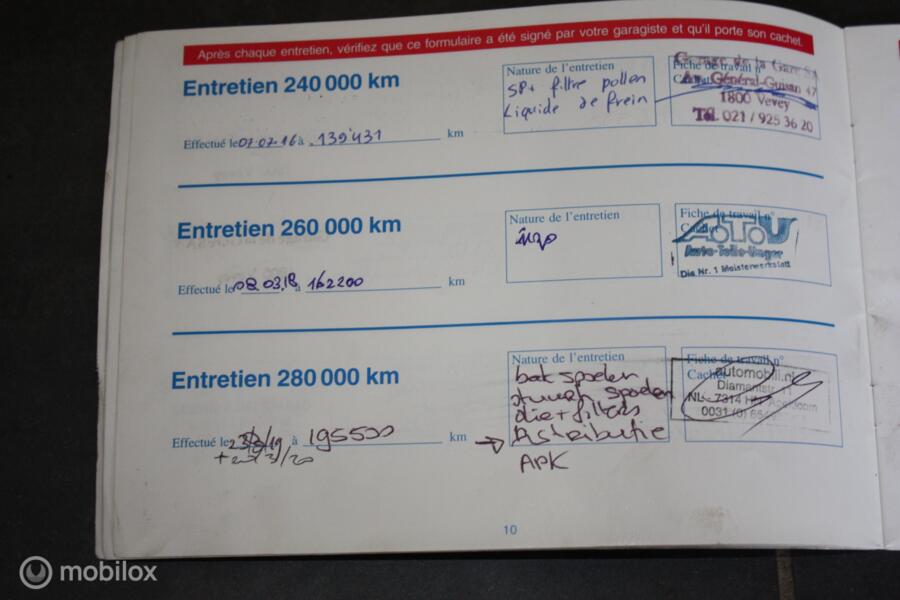 Après chaque entretien, vérifiez que ce formulaire a été signé par votre garagiste et qu'il porte son cachet.
Entretien 240 000 km
Effectué le 07.07.16 à 139'431 km
Nature de l'entretien
SP+ filtre pollen
Liquide de frein
Fiche de travail n°
Cachet
Garage de la Gare SA
Av. Général-Guisan 47
1800 Vevey
Tél. 021 / 925 36 20
Entretien 260 000 km
Effectué le 08.03.18 à 162200 km
Nature de l'entretien
Fiche de travail n°
Cachet
Auto-Teile-Unger
Die Nr. 1 Meisterwerkstatt
Entretien 280 000 km
Effectué le à 195500 km
Nature de l'entretien
bak spoelen
spoelen
olie + filters
Distributie
APK
Fiche de travail n°
Cachet
automobili.nl
NL- 7314
0031 (0)
10
mobilox